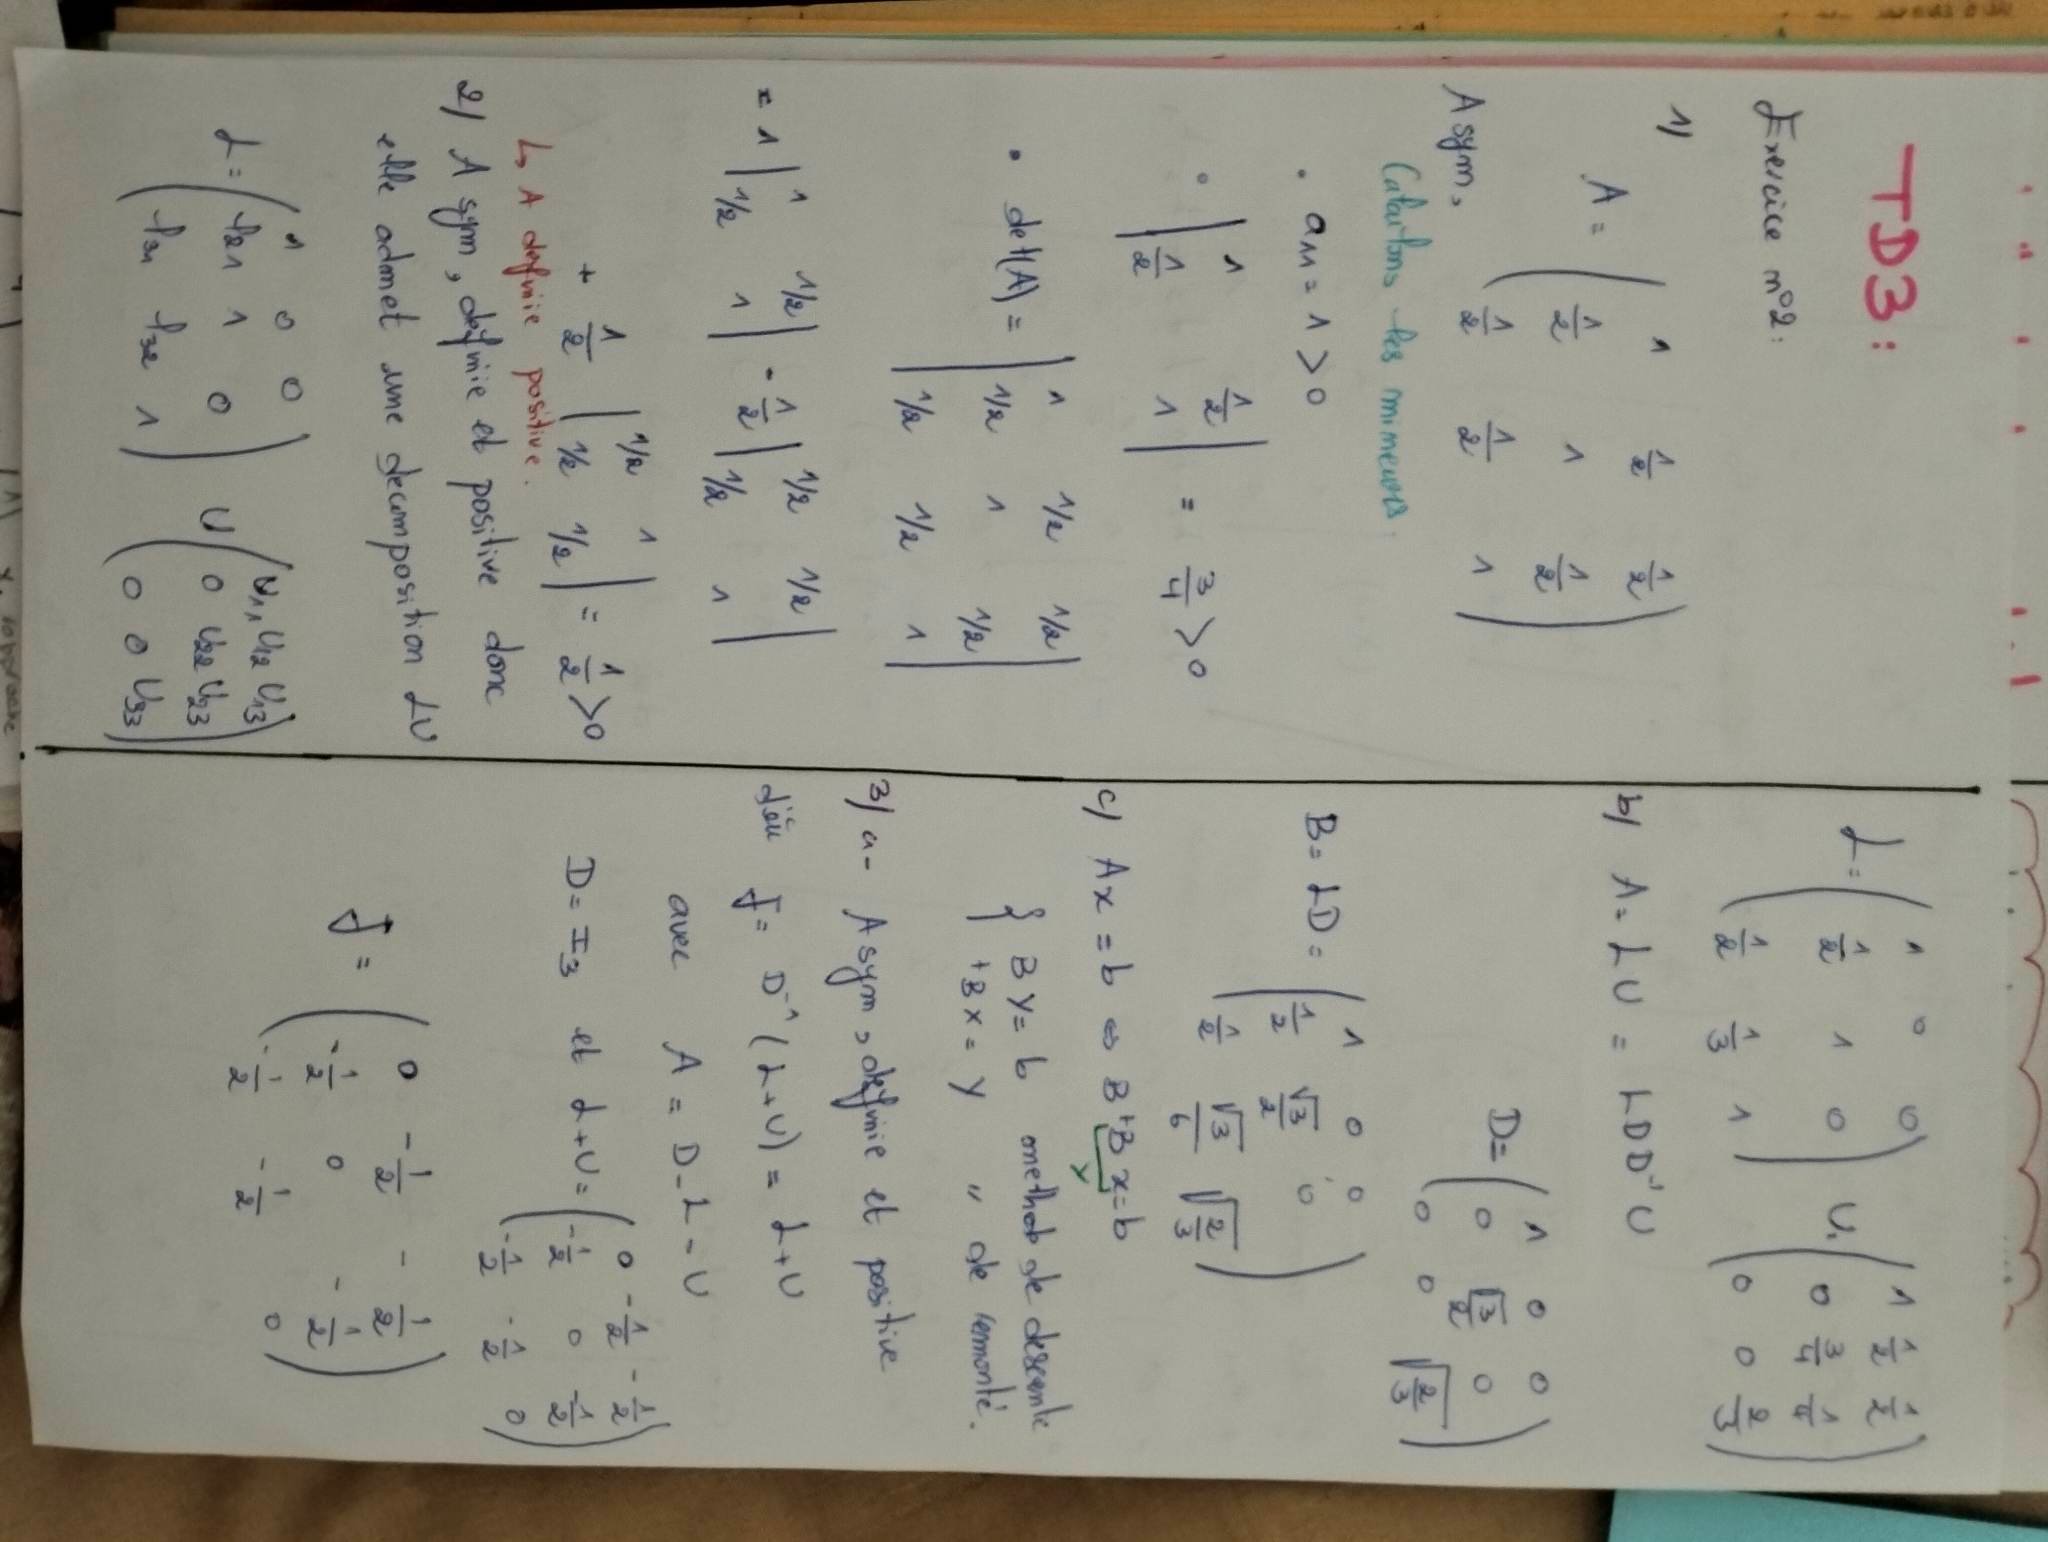 TD3:
Exercice n°2:
1)
A = ( 1 1/2 1/2
1/2 1 1/2
1/2 1/2 1 )
A sym,
Calculons les mineurs:
• a₁₁ = 1 > 0
• | 1 1/2
1/2 1 | = 3/4 > 0
• det(A) = | 1 1/2 1/2
1/2 1 1/2
1/2 1/2 1 |
= 1 | 1 1/2
1/2 1 | - 1/2 | 1/2 1/2
1/2 1 |
+ 1/2 | 1/2 1
1/2 1/2 | = 1/2 > 0
↳ A definie positive.
2) A sym, definie et positive donc
elle admet une decomposition LU
L = ( 1 0 0
l21 1 0
l31 l32 1 ) U ( U11 U12 U13
0 U22 U23
0 0 U33 )
L = ( 1 0 0
1/2 1 0
1/2 1/3 1 ) U = ( 1 1/2 1/2
0 3/4 1/4
0 0 2/3 )
b) A = LU = LDD⁻¹U
D = ( 1 0 0
0 √3/2 0
0 0 √(2/3) )
B = LD = ( 1 0 0
1/2 √3/2 0
1/2 √3/6 √(2/3) )
c) Ax = b ⇔ B ᵗB x = b
Y
{ BY = b methode de descente
ᵗBx = Y " de remonté.
3) a- A sym, definie et positive
d'où J = D⁻¹(L+U) = L+U
avec A = D - L - U
D = I₃ et L+U = ( 0 -1/2 -1/2
-1/2 0 -1/2
-1/2 -1/2 0 )
J = ( 0 -1/2 -1/2
-1/2 0 -1/2
-1/2 -1/2 0 )